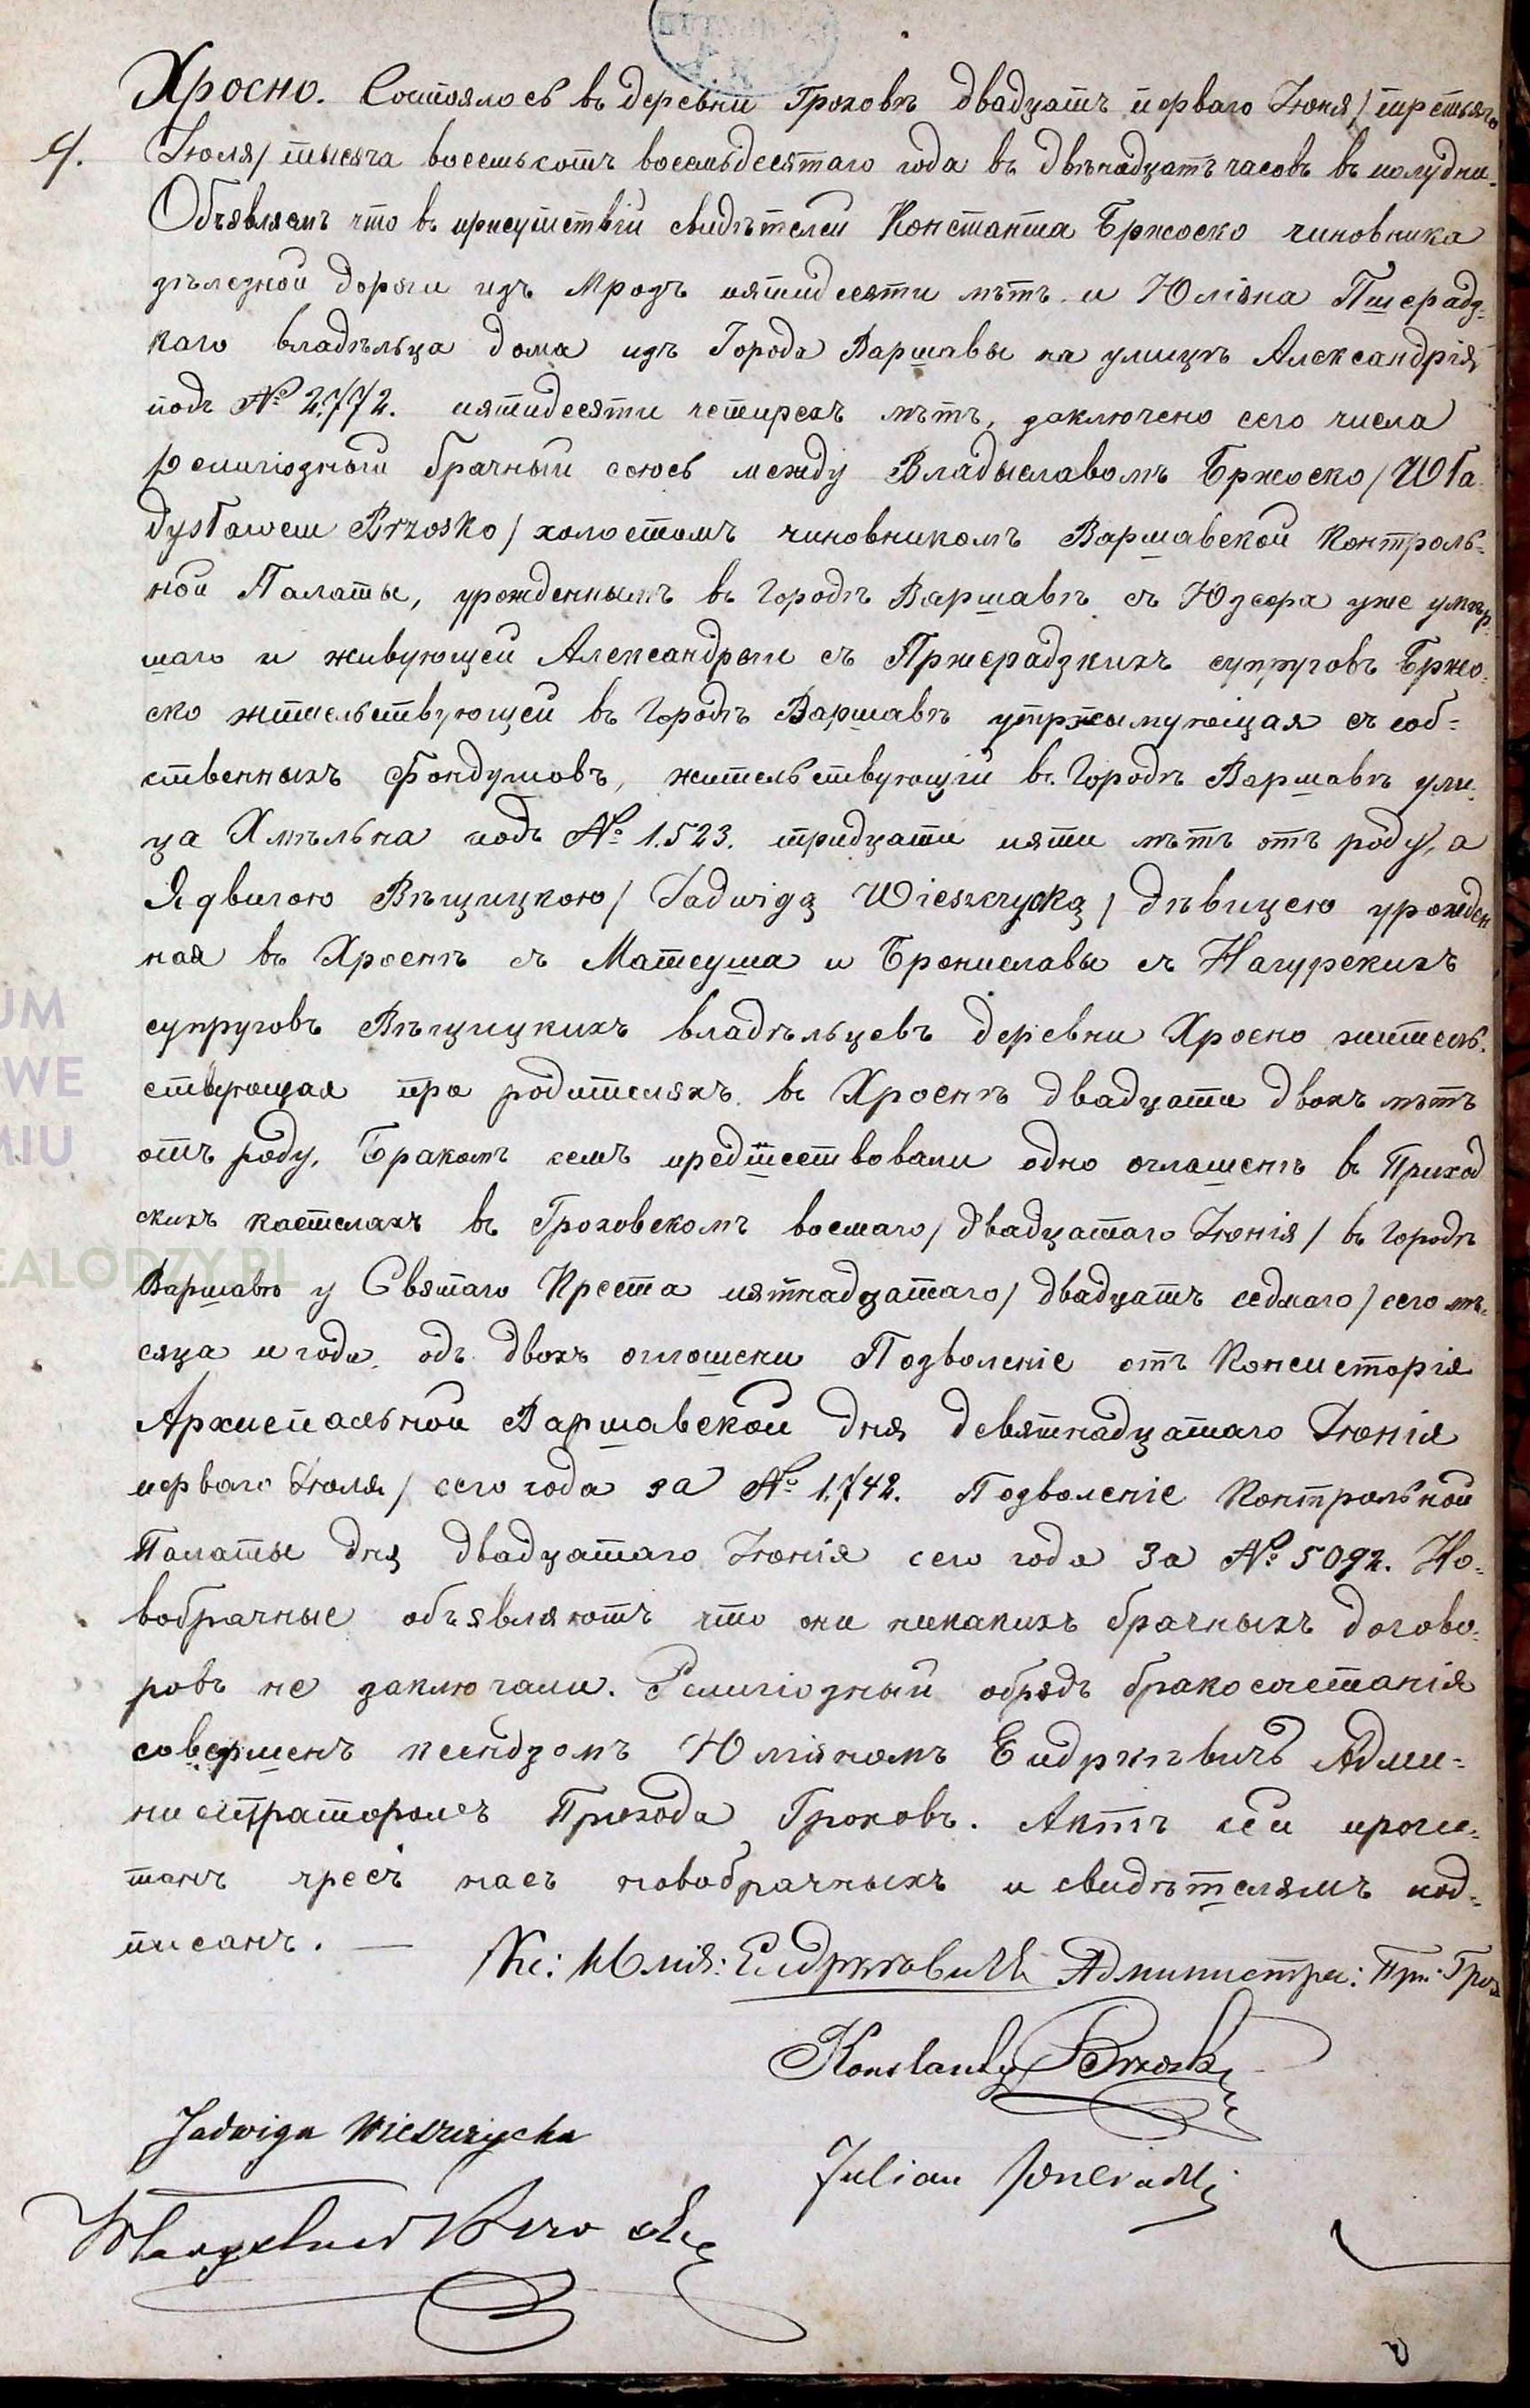 Хросно. Состоялось въ деревни Гроховѣ двадцать перваго Іюня / третьяго
4. Іюля / тысяча восемьсотъ восемьдесятаго года въ двѣнадцать часовъ въ полудни.
Объявляемъ что въ присутствіи свидѣтелей Константа Бржоско чиновника
зѣлезной дороги изъ Мрозъ пятидесяти лѣтъ и Юліяна Пшерадз-
каго владѣльца дома изъ Города Варшавы на улицѣ Александрія
подъ № 2.772. пятидесяти четырехъ лѣтъ, заключено сего числа
религіозный брачный союсъ между Владыславомъ Бржоско / Wła-
dysławem Brzosko / холостомъ чиновникомъ Варшавской Контроль-
ной Палаты, урожденнымъ въ Городѣ Варшавѣ съ Юзефа уже умѣр-
шаго и живующей Александры съ Пржерадзкихъ супруговъ Бржо-
ско жительствующей въ Городѣ Варшавѣ утржымующая съ соб-
ственныхъ фондушовъ, жительствующій въ Городѣ Варшавѣ ули-
ца Хмѣльна подъ № 1.523. тридцати пяти лѣтъ отъ роду, а
Ядвигою Вѣщицкою / Jadwigą Wieszczycką / дѣвицею урожден
ная въ Хроснѣ съ Матеуша и Брониславы съ Нагурскихъ
супруговъ Вѣщицкихъ владѣльцевъ деревни Хросно жытель-
ствующая пра родителяхъ въ Хроснѣ двадцати двохъ лѣтъ
отъ роду. Бракомъ семъ предшествовали одно оглашенѣ въ Приход
скихъ костелахъ въ Гроховскомъ восмаго / двадцатаго Іюнія / въ Городѣ
Варшавѣ у Святаго Креста пятнадцатаго / двадцать седмаго / сего мѣ-
сяца и года, одъ двохъ оглошени Позволеніе отъ Консисторія
Архиепальной Варшавской дня девятнадцатаго Іюнія
перваго Іюля / сего года за № 1.742. Подволеніе Контрольной
Палаты дня двадцатаго Іюнія сего года за № 5092. Но-
вобрачные объявляютъ что они никакихъ брачныхъ догово-
ровъ не заключали. Религіозный обрядъ бракосочетанія
совершенъ ксендзомъ Юліяномъ Ендркѣвичъ Адми-
нистраторомъ Прихода Гроховъ. Актъ сей прочи-
танъ чресъ насъ новобрачныхъ и свидѣтелямъ под-
писанъ. —
Кс: Юлія: Ендркѣвичъ Администра: При: Грох
Konstanty Brzosko
Jadwiga Wieszczycka
Julian